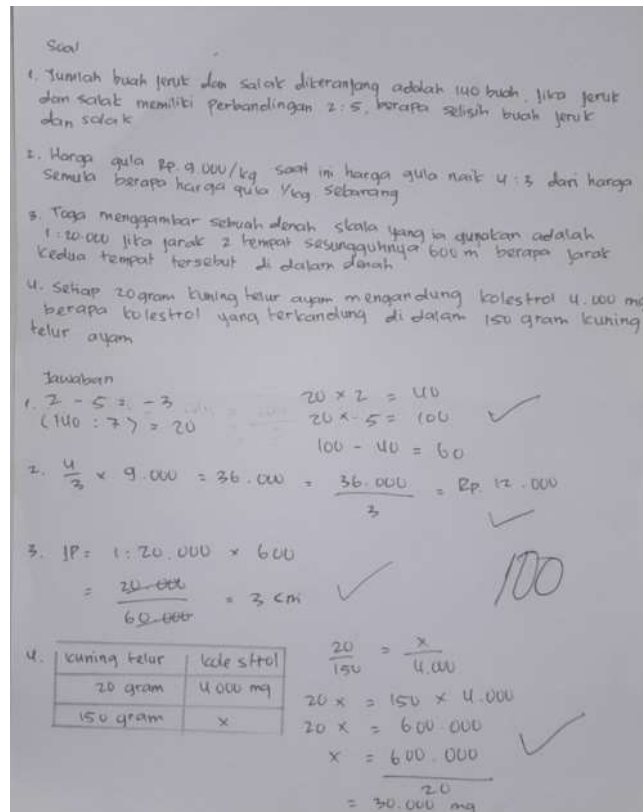 Soal
1. Jumlah buah jeruk dan salak dikeranjang adalah 140 buah. jika jeruk
dan salak memiliki Perbandingan 2:5, berapa selisih buah jeruk
dan salak
2. Harga gula Rp. 9.000/kg saat ini harga gula naik 4:3 dari harga
semula berapa harga gula 1/kg sekarang
3. Toga menggambar sebuah denah skala yang ia gunakan adalah
1:20.000 jika jarak 2 tempat sesungguhnya 600 m berapa jarak
kedua tempat tersebut di dalam denah
4. Setiap 20 gram kuning telur ayam mengandung kolestrol 4.000 mg
berapa kolestrol yang terkandung di dalam 150 gram kuning
telur ayam
Jawaban
1. 2 - 5 = -3
(140 : 7) = 20
20 × 2 = 40
20 × 5 = 100
100 - 40 = 60
2. 4/3 × 9.000 = 36.000 = 36.000/3 = Rp. 12.000
3. JP = 1:20.000 × 600
= 20.000/60.000 = 3 cm
100
4. kuning telur kolestrol
20 gram 4000 mg
150 gram x
20/150 = x/4.000
20 x = 150 × 4.000
20 x = 600.000
x = 600.000/20
= 30.000 mg